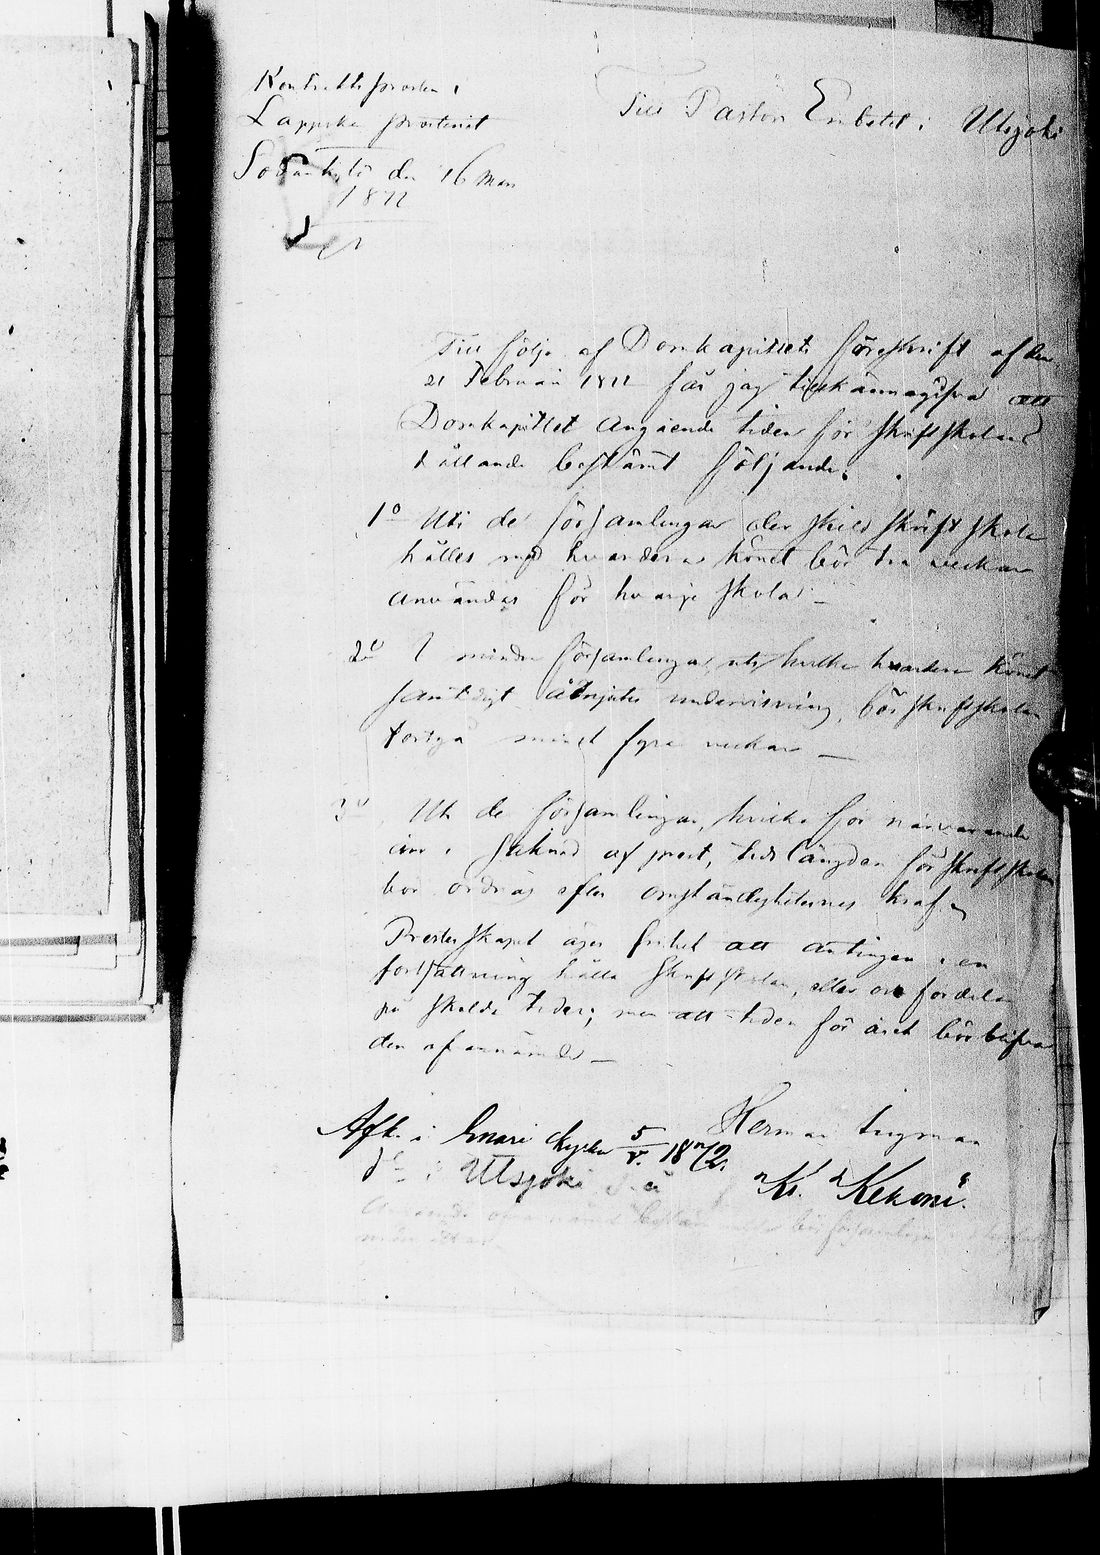 Kontraktsprosten i
Lappska prosteriet
Sodankylä den 16 Mars
1872
Till Pastors Embetet i Utsjoki
Till följe af Domkapitlets föreskrift af den
21 Februari 1872 får jag tillkännagifva att
Domkapitlet angående tiden för skriftskolans
hållande bestämt följande:
1º Uti de församlingar der skild skriftskola
hålles med hvardera könet bör tre veckor
användas för hvarje skola –
2º I mindre församlingar, uti hvilka hvardera könet
samtidigt åtnjuter undervisning, bör skriftskolan
fortgå minst fyra veckor –
3º Uti de församlingar, hvilka för närvarande
äro i saknad af prest, tidslängden för skriftskolan
bör ordnas efter omständigheternes kraf
Presterskapet äger frihet att antingen i en
fortsättning hålla skriftskolan, eller ock fördela
på skilda tider; men att tiden för året bör blifva
den ofvannämda –
Herman
Afk. i Enari kyrka 5/V. 1872.
i Utsjoki
Kr. Kekoni.